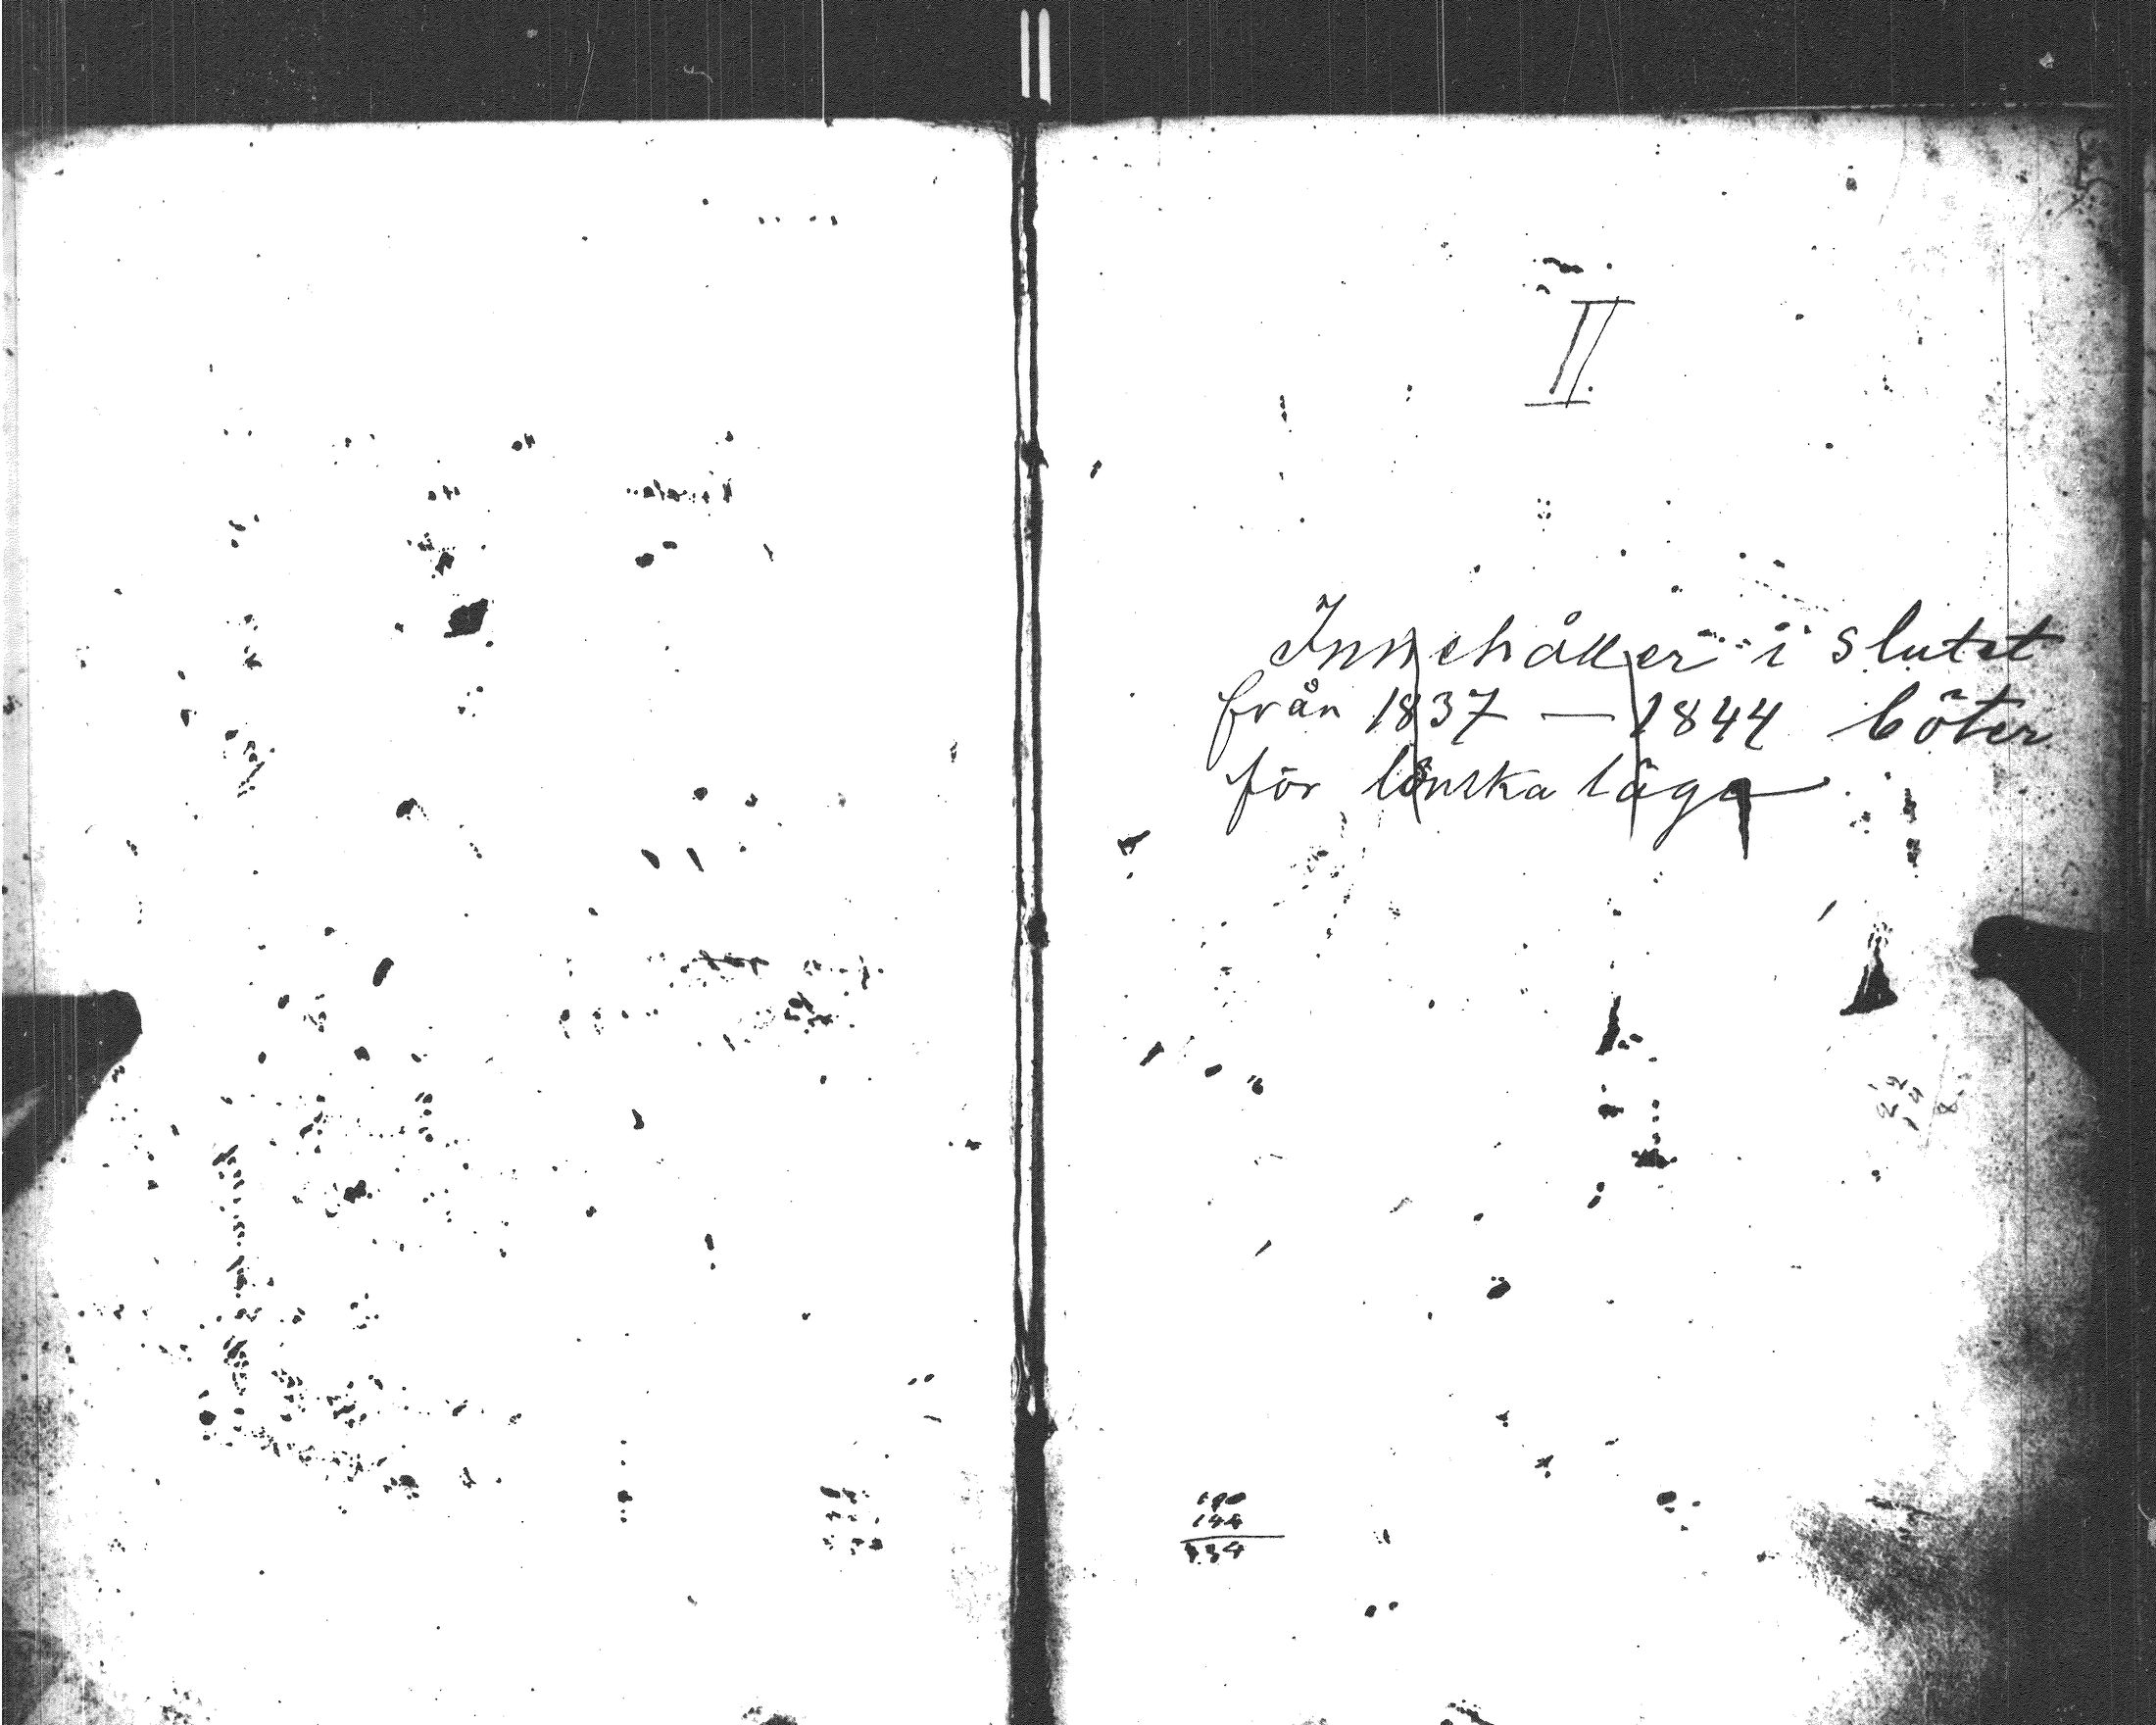 II.
Innehåller i slutet
från 1837 — 1844 böter
för lönska läge
190
144
334